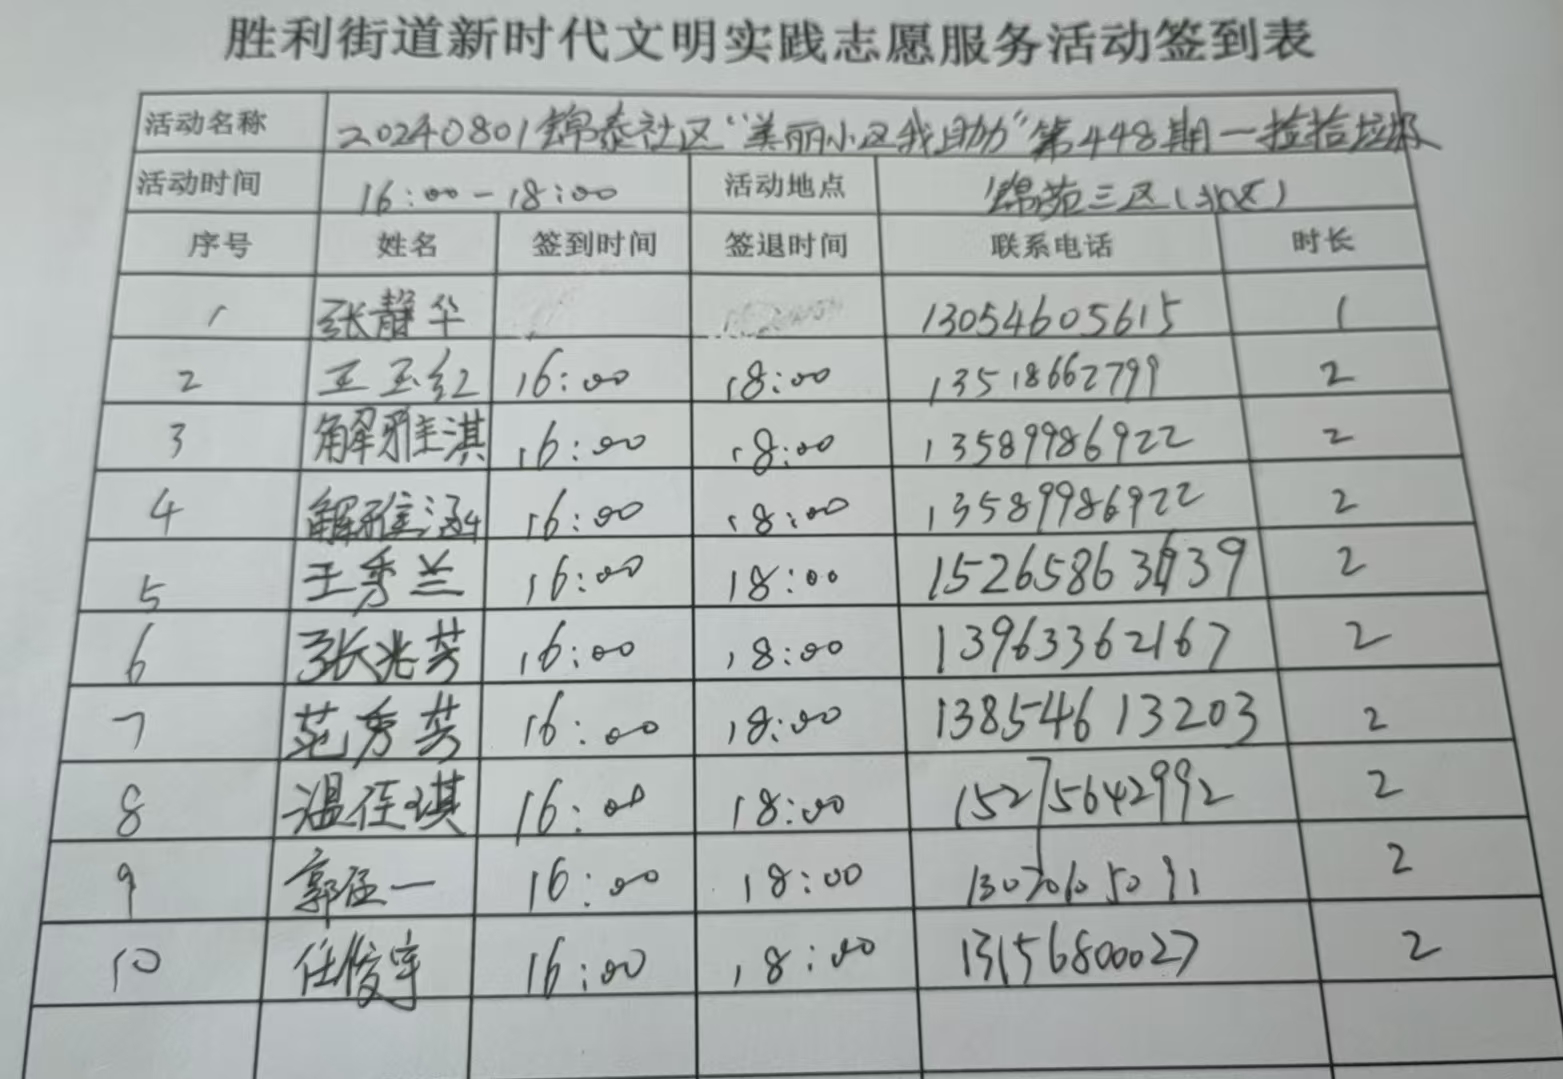 胜利街道新时代文明实践志愿服务活动签到表
活动名称 20240801锦泰社区“美丽小区我助力”第448期一捡拾垃圾
活动时间 16:00-18:00 活动地点 锦苑三区(北区)
序号 姓名 签到时间 签退时间 联系电话 时长
1 张静华 13054605615 1
2 王玉红 16:00 18:00 13518662799 2
3 解雅淇 16:00 18:00 13589986922 2
4 解雅涵 16:00 18:00 13589986922 2
5 王秀兰 16:00 18:00 2
6 张兆芳 16:00 18:00 13963362167 2
7 范秀芬 16:00 18:00 13854613203 2
8 温任琪 16:00 18:00 15275642992 2
9 郭一 16:00 18:00 2
10 任俊宇 16:00 18:00 13156800027 2